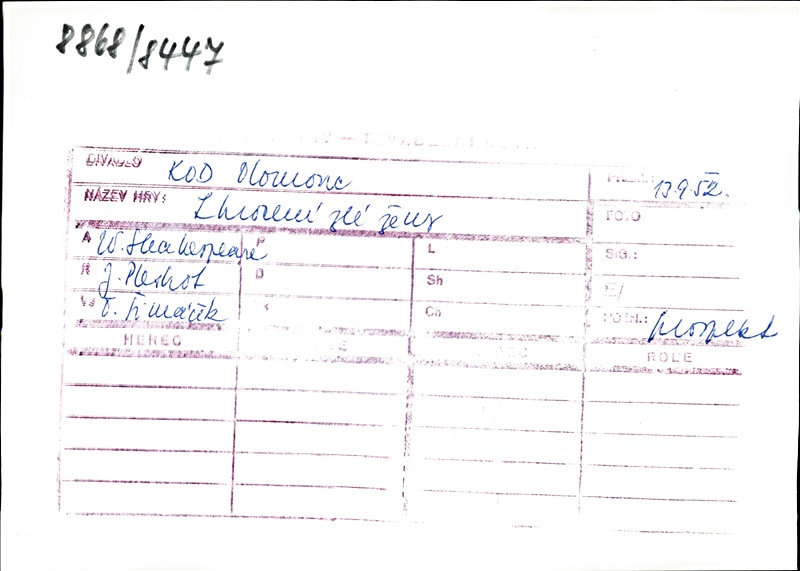 8868/8447
DIVADLO KOD Olomouc
13.9.52.
NÁZEV HRY: Zkrocení zlé ženy
FOTO
A W. Shakespeare P L SIG.:
R J. Plachot D Sh
Vs Č. Šimáček Ch POZN.: prospekt
HEREC HEREC ROLE